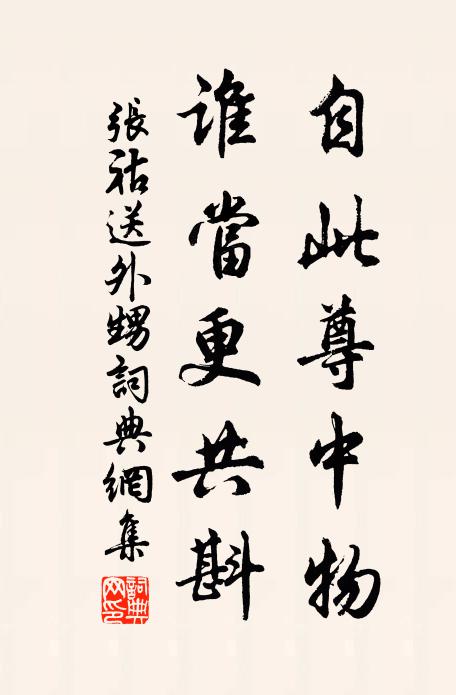 自此尊中物
誰當更共斟
張祜送外甥詞典網集
詞典網印